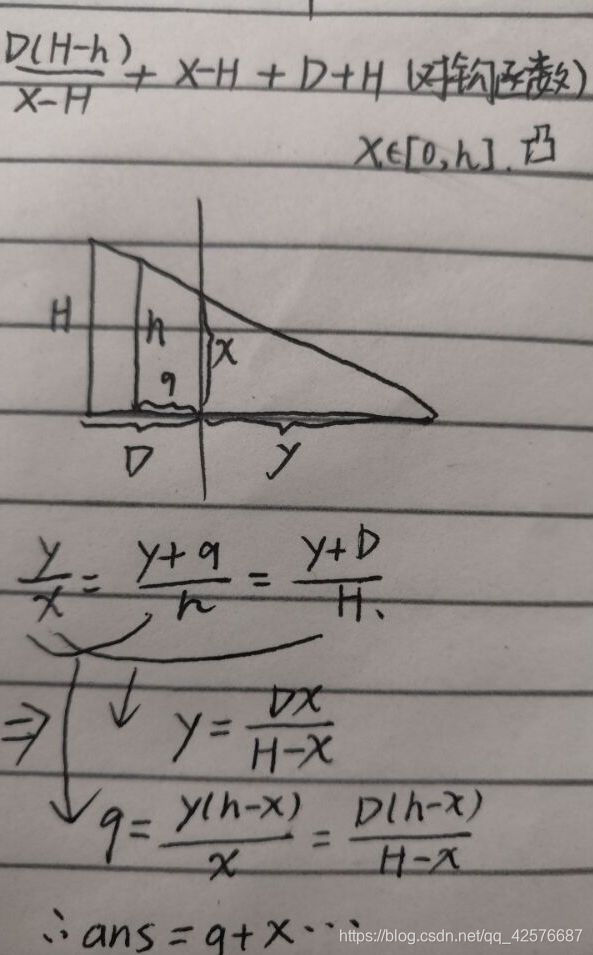 D(H-h)/(X-H) + X-H + D+H (对钩函数)
X∈[0,h]. 凸
H
h
x
q
D
y
y/x = (y+q)/h = (y+D)/H.
⇒ y = DX/(H-X)
q = y(h-x)/x = D(h-x)/(H-x)
∴ ans = q+x⋯
https://blog.csdn.net/qq_42576687